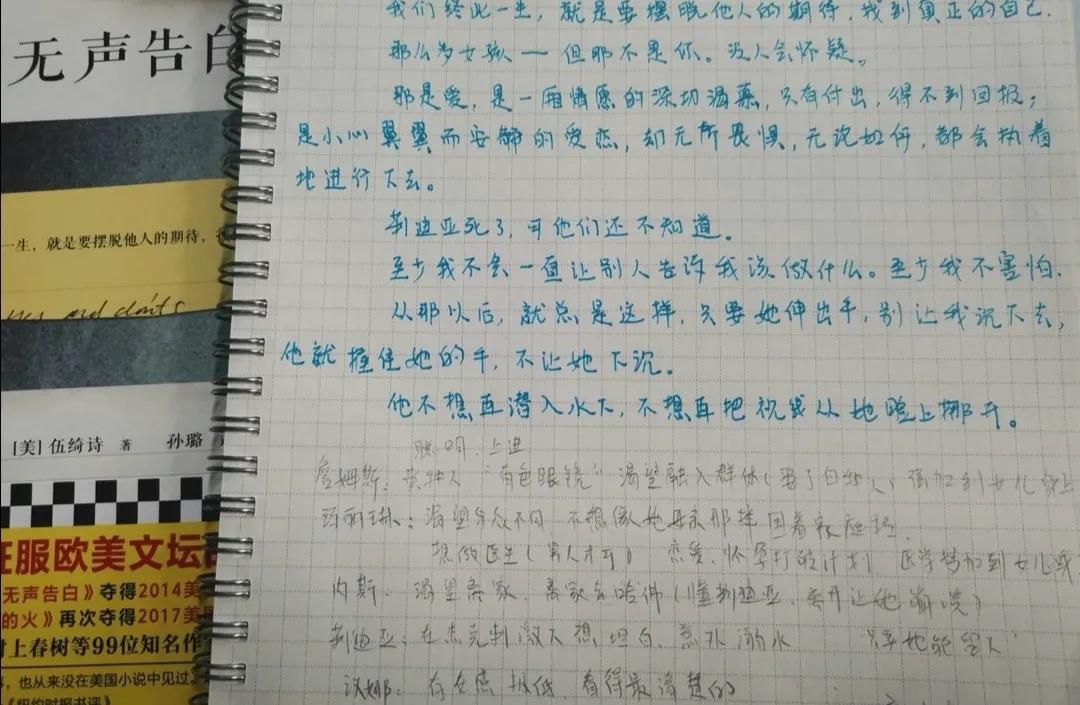 无声告白
一生，就是要摆脱他人的期待，
yes and don'ts
[美]伍绮诗 著 孙璐
征服欧美文坛
无声告白》夺得2014美
的火》再次夺得2017美
村上春树等99位知名作
，也从来没在美国小说中见过。
《纽约时报书评》
我们终此一生，就是要摆脱他人的期待，找到真正的自己.
那么多女孩——但那不是你。没人会怀疑。
那是爱，是一厢情愿的深切渴慕，只有付出，得不到回报；
是小心翼翼而安静的爱恋，却无所畏惧，无论如何，都会执着
地进行下去。
莉迪亚死了，可他们还不知道。
至少我不会一直让别人告诉我该做什么。至少我不害怕.
从那以后，就总是这样，只要她伸出手，别让我沉下去，
他就握住她的手，不让她下沉.
他不想再潜入水下，不想再把视线从她脸上挪开。
聪明.上进
詹姆斯：黄种人 “有色眼镜” 渴望融入群体(娶了白种人)强加到女儿身上
玛丽琳：渴望与众不同 不想像她母亲那样围着家庭
想做医生(男人才可) 恋爱、怀孕打破计划 医学梦加到女儿
内斯：渴望离家、离家去哈佛(懂莉迪亚、离开让她崩溃)
莉迪亚：在杰克刺激下想坦白、 溺水 只要她能留下
汉娜：存在感极低、看得最清楚的